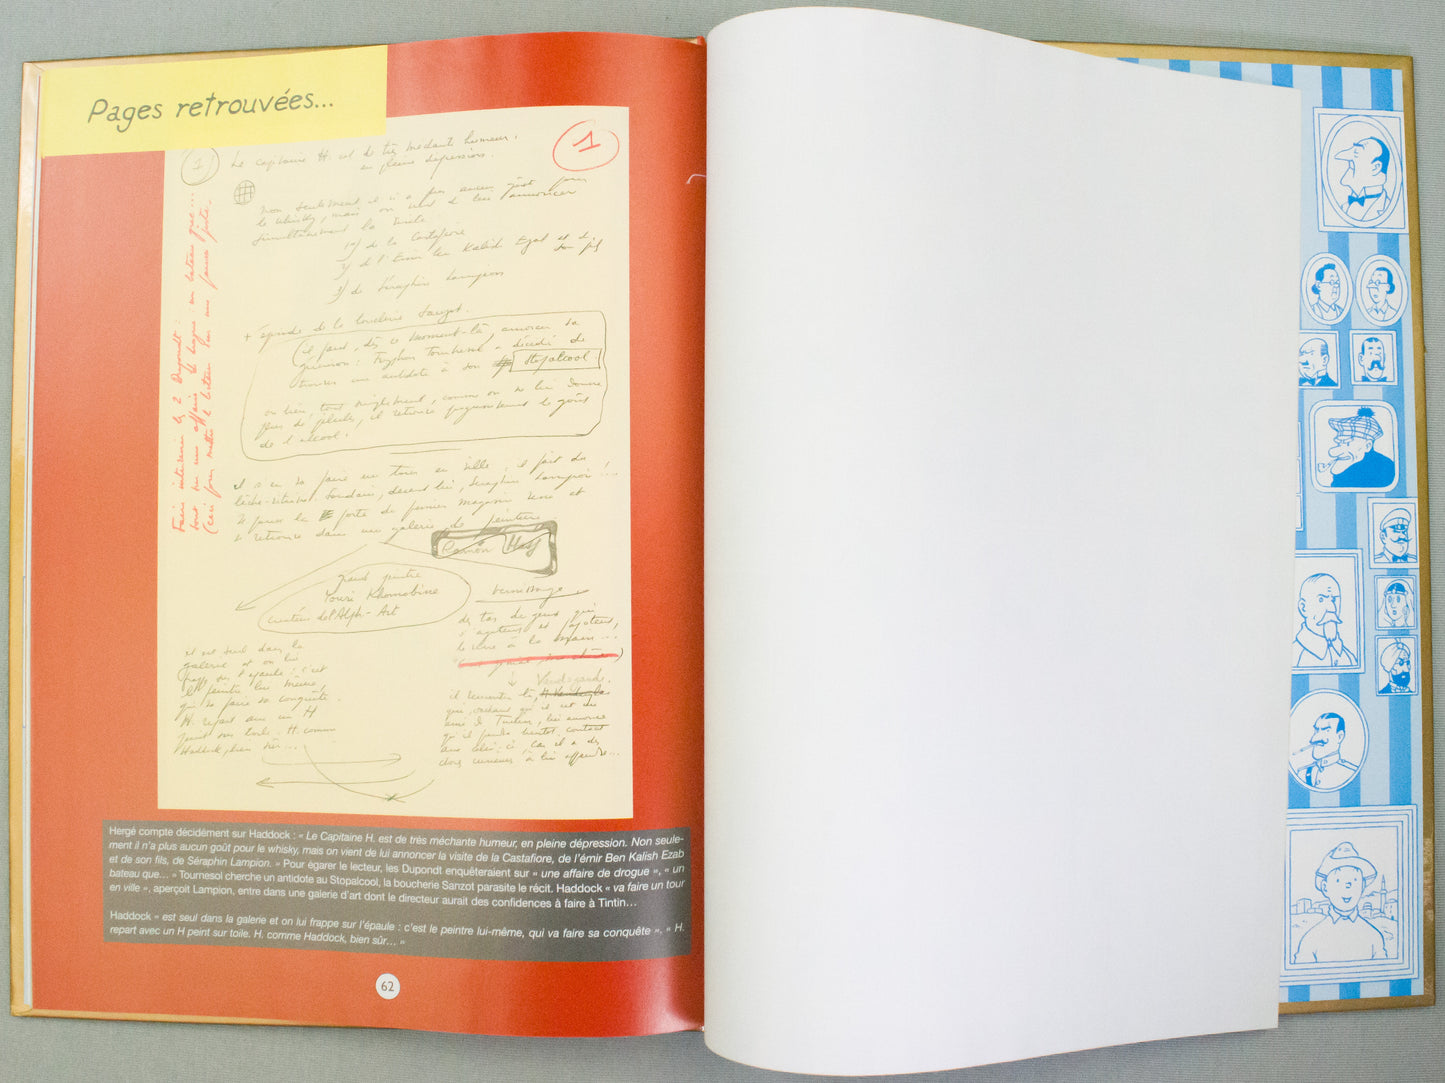 Pages retrouvées...
1
1
Le capitaine H. est de très méchante humeur,
en pleine dépression.
Non seulement il n'a plus aucun goût pour
le whisky, mais on vient de lui annoncer
simultanément la visite
1°) de la Castafiore
2) de l'Emir Ben Kalish Ezab et de son fils
3) de Séraphin Lampion
+ épisode de la boucherie Sanzot.
(il faut, dès ce moment-là, amorcer sa
guérison : Tryphon Tournesol a décidé de
trouver un antidote à son Stopalcool.
ou bien, tout simplement, comme on ne lui donne
plus de pilules, il retrouve progressivement le goût
de l'alcool.
il s'en va faire un tour en ville, il fait du
lèche-vitrine. Soudain, devant lui, Séraphin Lampion !...
Il pousse la porte du premier magasin venu et
se retrouve dans une galerie de peinture
Ramón Hass
grand peintre
Youri Khomobine
créateur de l'Alph-Art
vernissage
des tas de gens qui
s'agitent et papotent,
le verre à la main...
il est seul dans la
galerie et on lui
frappe sur l'épaule : c'est
le peintre lui-même,
qui va faire sa conquête.
H. repart avec un H
peint sur toile. H. comme
Haddock, bien sûr...
Vandezande.
il rencontre là,
qui, sachant qu'il est un
ami de Tintin, lui annonce
qu'il prendra bientôt contact
avec celui-ci, car il a des
choses curieuses à lui apprendre...
Faire intervenir les 2 Dupondt :
sont sur une affaire de drogue : un bateau que...
(ceci pour mettre le lecteur sur une fausse piste.
Hergé compte décidément sur Haddock : « Le Capitaine H. est de très méchante humeur, en pleine dépression. Non seule-
ment il n'a plus aucun goût pour le whisky, mais on vient de lui annoncer la visite de la Castafiore, de l'émir Ben Kalish Ezab
et de son fils, de Séraphin Lampion. » Pour égarer le lecteur, les Dupondt enquêteraient sur « une affaire de drogue », « un
bateau que... » Tournesol cherche un antidote au Stopalcool, la boucherie Sanzot parasite le récit. Haddock « va faire un tour
en ville », aperçoit Lampion, entre dans une galerie d'art dont le directeur aurait des confidences à faire à Tintin...
Haddock « est seul dans la galerie et on lui frappe sur l'épaule : c'est le peintre lui-même, qui va faire sa conquête ». « H.
repart avec un H peint sur toile. H. comme Haddock, bien sûr... »
62